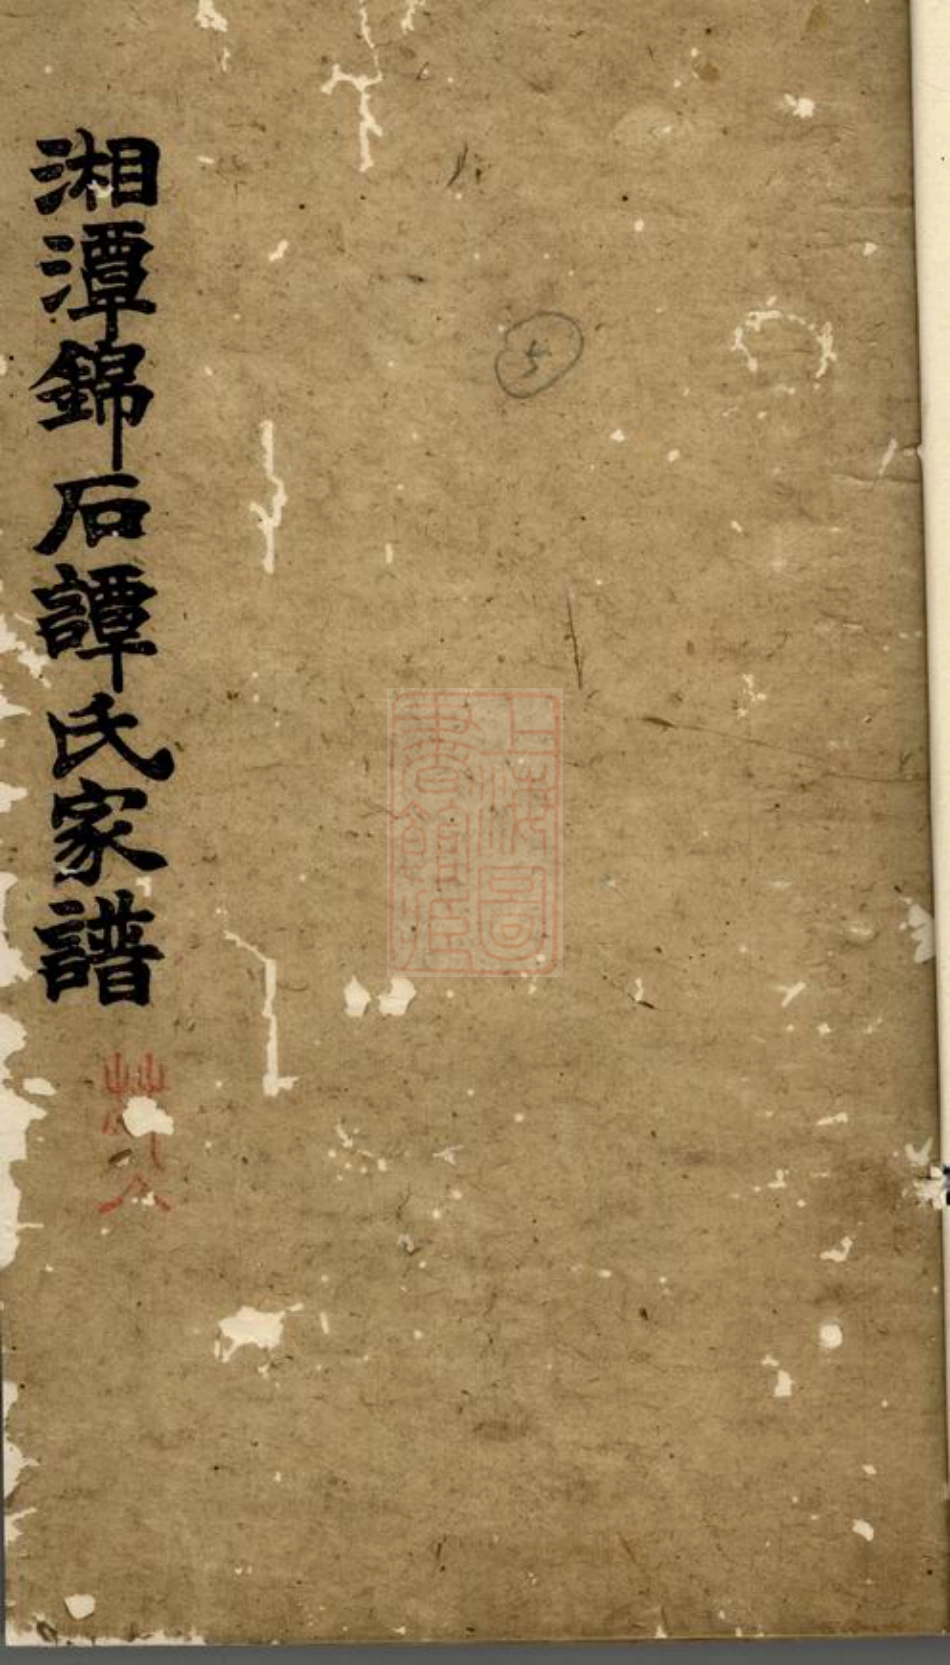 湘潭錦石譚氏家譜
5
上海圖
書館藏